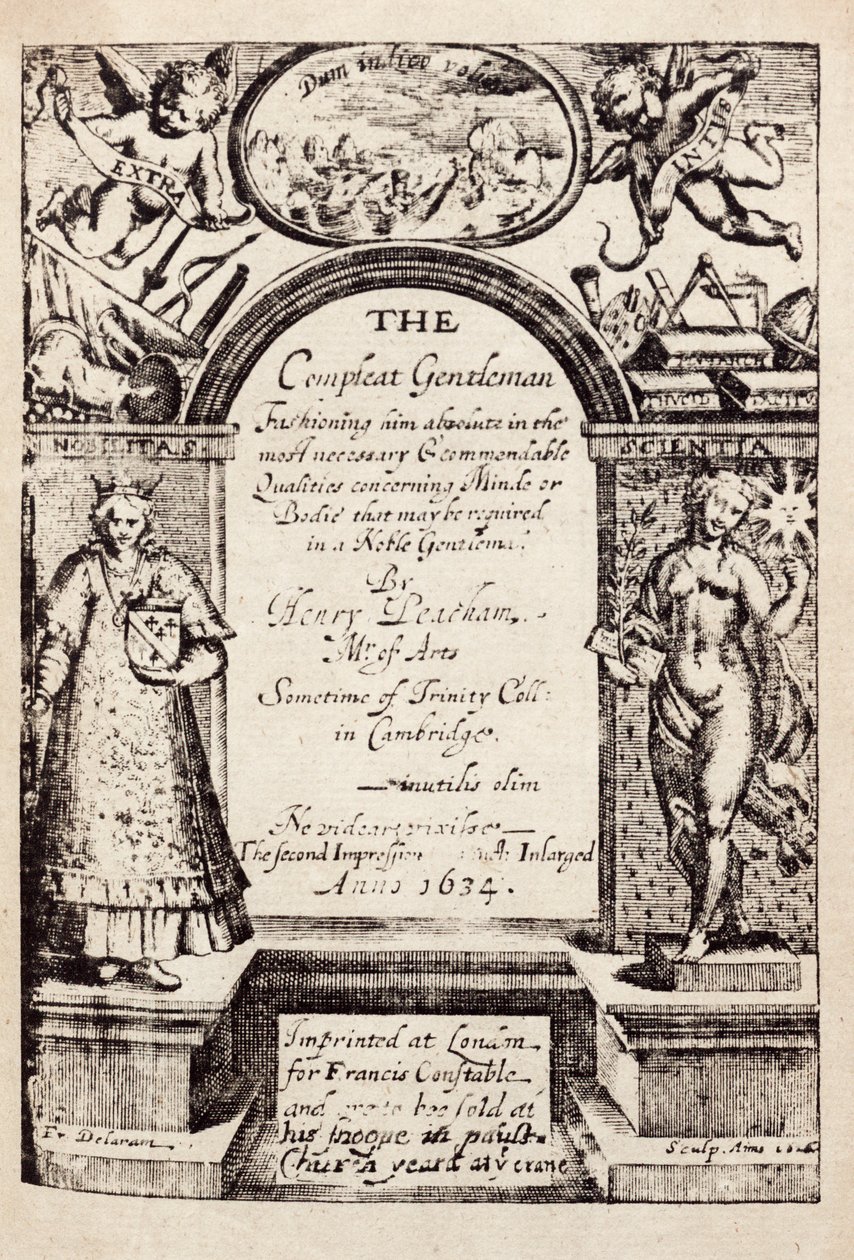 Dum indico
EXTRA
INTUS
THE
Compleat Gentleman
Fashioning him absolute in the
most necessary & commendable
Qualities concerning Minde or
Bodie that may be required
in a Noble Gentlema.
By
Henry Peacham,
Mr. of Arts
Sometime of Trinity Coll:
in Cambridge.
—inutilis olim
Ne videar vixisse—
The second Impression Inlarged
Anno 1634.
NOBILITAS
SCIENTIA
THUCID
TACITUS
Imprinted at London
for Francis Constable
and are to bee sold at
his shoppe in paules
Church yeard at ye crane
Fr. Delaram
Sculp. Anno